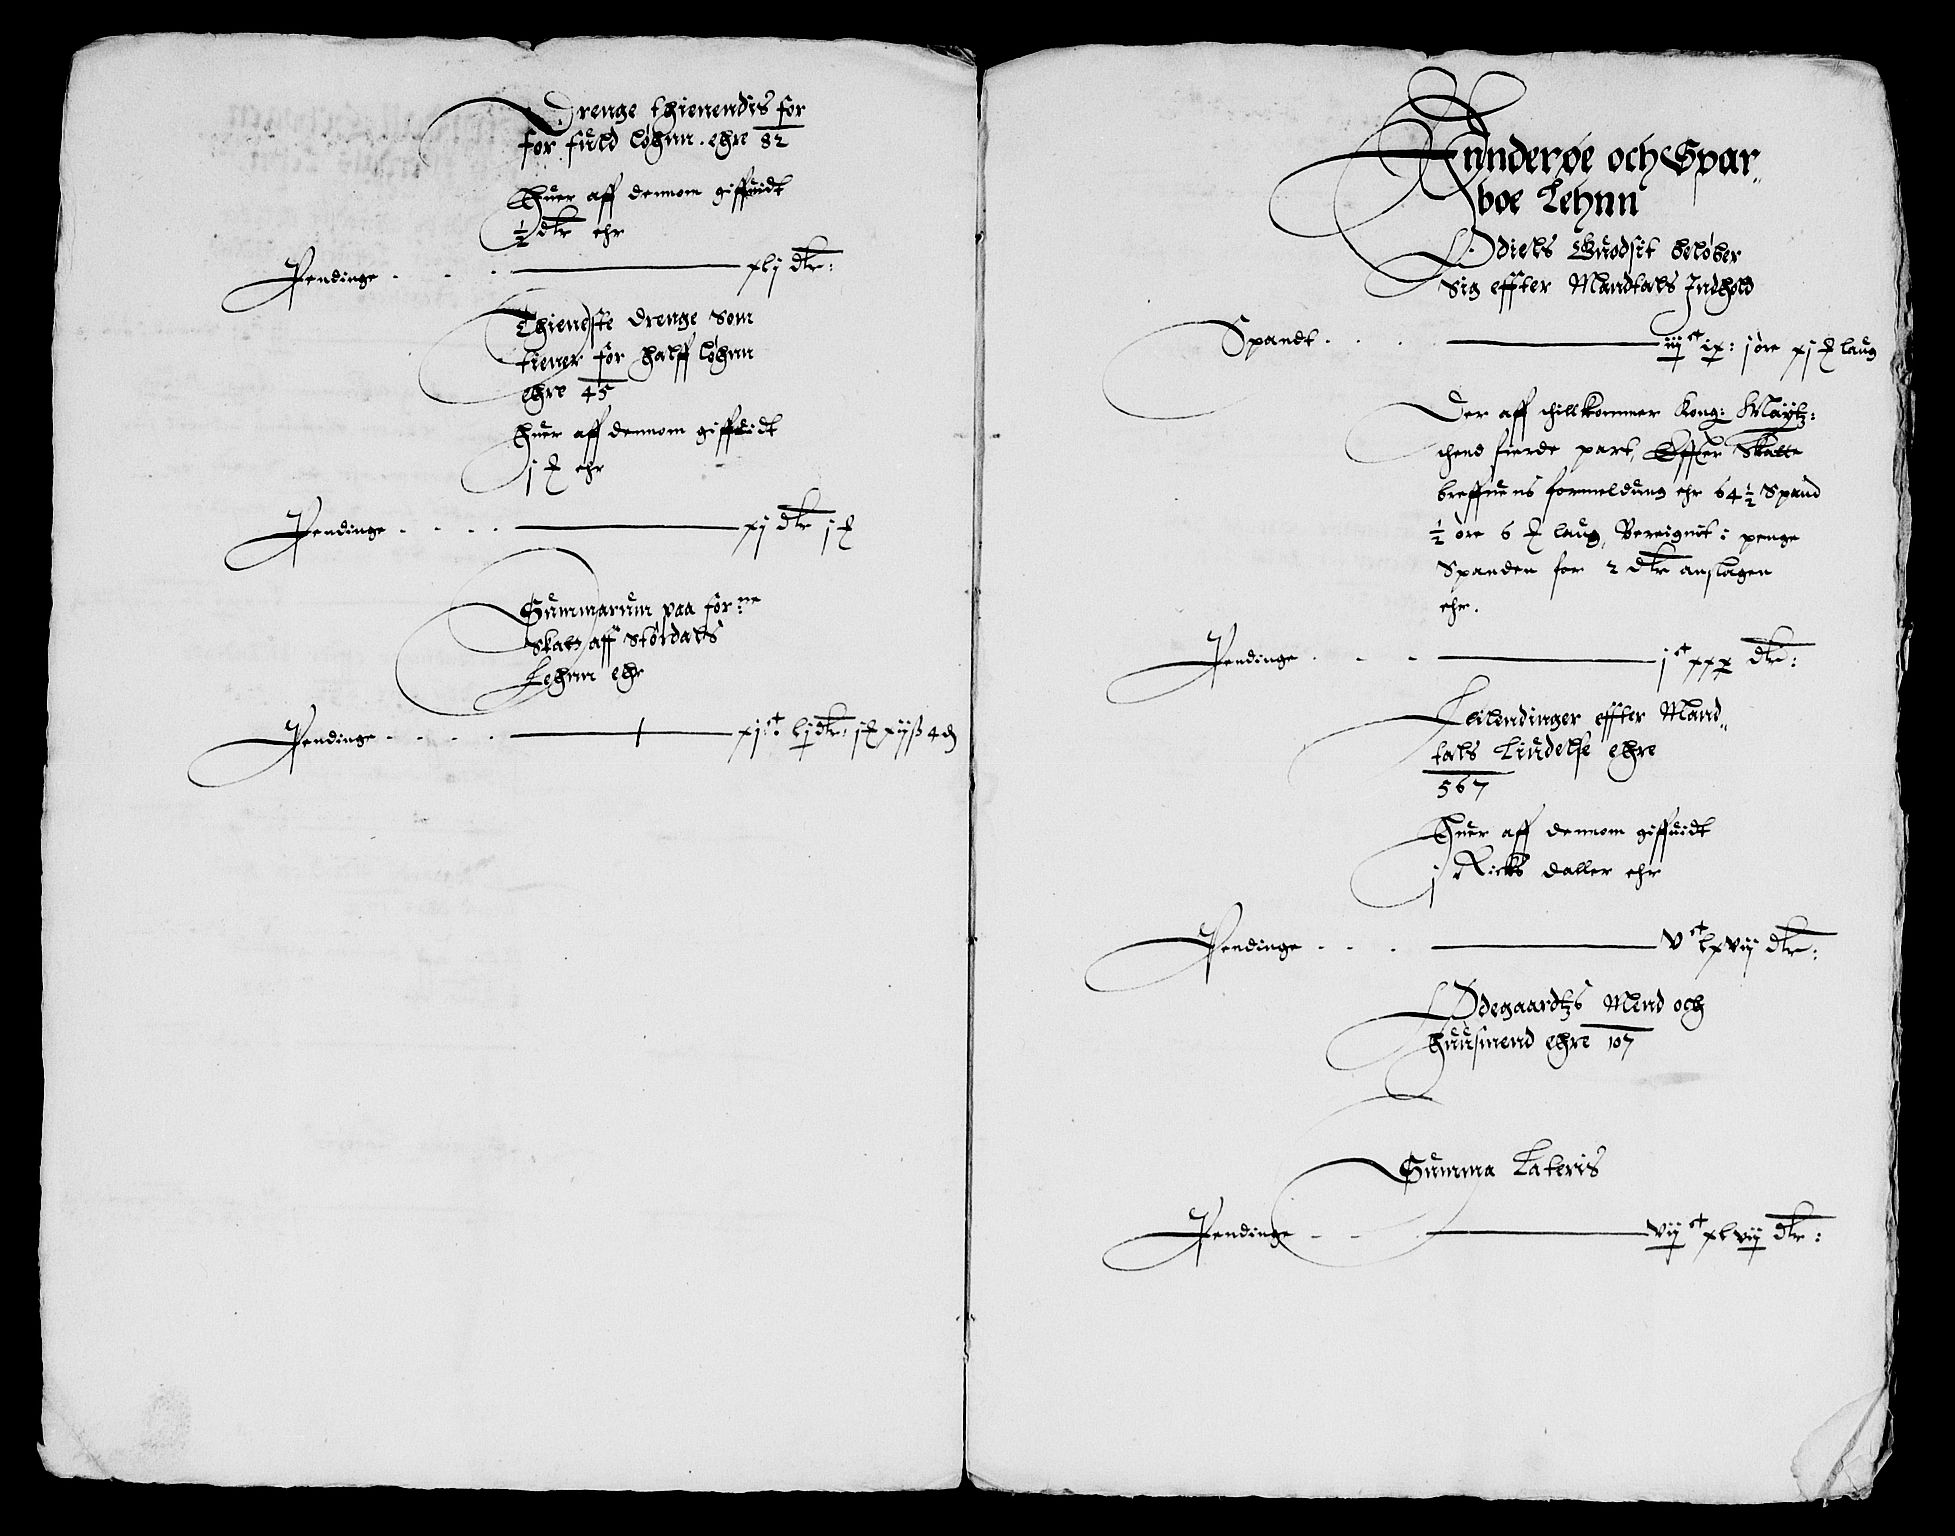 Drenge thienendis for
for fuld løhnn. ehre 82
Huer aff dennom giffuidt
½ dlr ehr
Pendinge . . . xlj dlr:
Thieneste drenge Som
tiener for halff løhnn
ehre 45
huer aff dennom giffuidt
j ehr
Pendinge . . . . xj dlr j
Summarum paa for:ne
Skatz aff Størdals
Lehnn ehr
Pendinge . . . . xjc: lj dlr: j xijß 4 d
Inderøe och Spar„
boe Lehnn
Odiels Guodsit beløber
Sig effter Mandtals Indhold
Spandt . . . iijc ix: j øre xj laug
Der aff thillkommer Kong: Maytz:
thend fierde part, Effter Skatte
breffuens formeldung ehr 64½ Spand
½ øre 6 laug, Bereignit i penge
Spanden for 2 dlr anslagen
ehr.
Pendinge . . . jc xxx dlr:
Leilendinger effter Mand„
tals Liudelse ehre
567
Huer aff dennom giffuidt
j Ricks daller ehr
Pendinge . . . Vc lxvij dlr:
Ødegaardtzs Mend och
huusmend ehre 107
Summa Lateris
Pendinge . . . Vijc xlvij dlr: